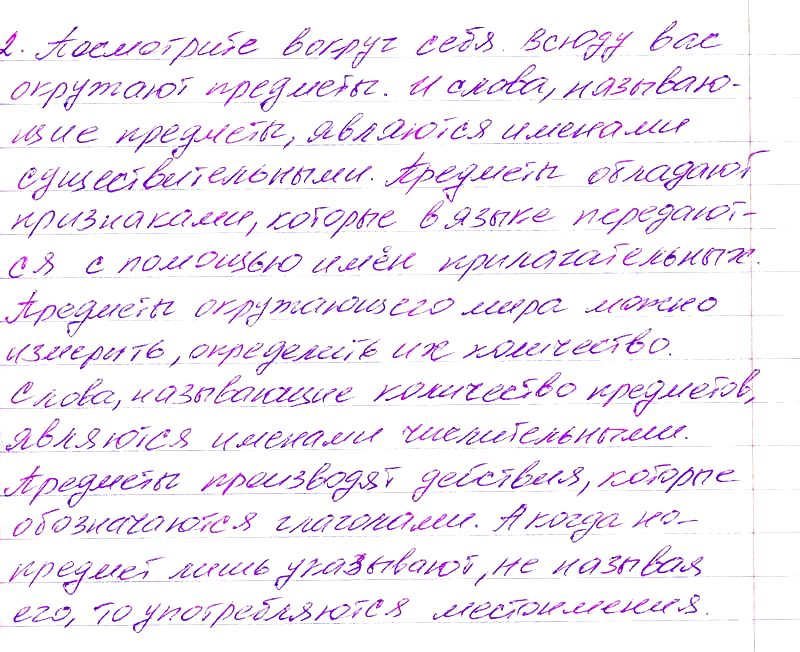 2. Посмотрите вокруг себя. Всюду вас
окружают предметы. И слова, называю-
щие предметы, являются именами
существительными. Предметы обладают
признаками, которые в языке передают-
ся с помощью имён прилагательных.
Предметы окружающего мира можно
измерить, определить их количество.
Слова, называющие количество предметов,
являются именами числительными.
Предметы производят действия, которые
обозначаются глаголами. А когда на-
предмет лишь указывают, не называя
его, то употребляются местоимения.